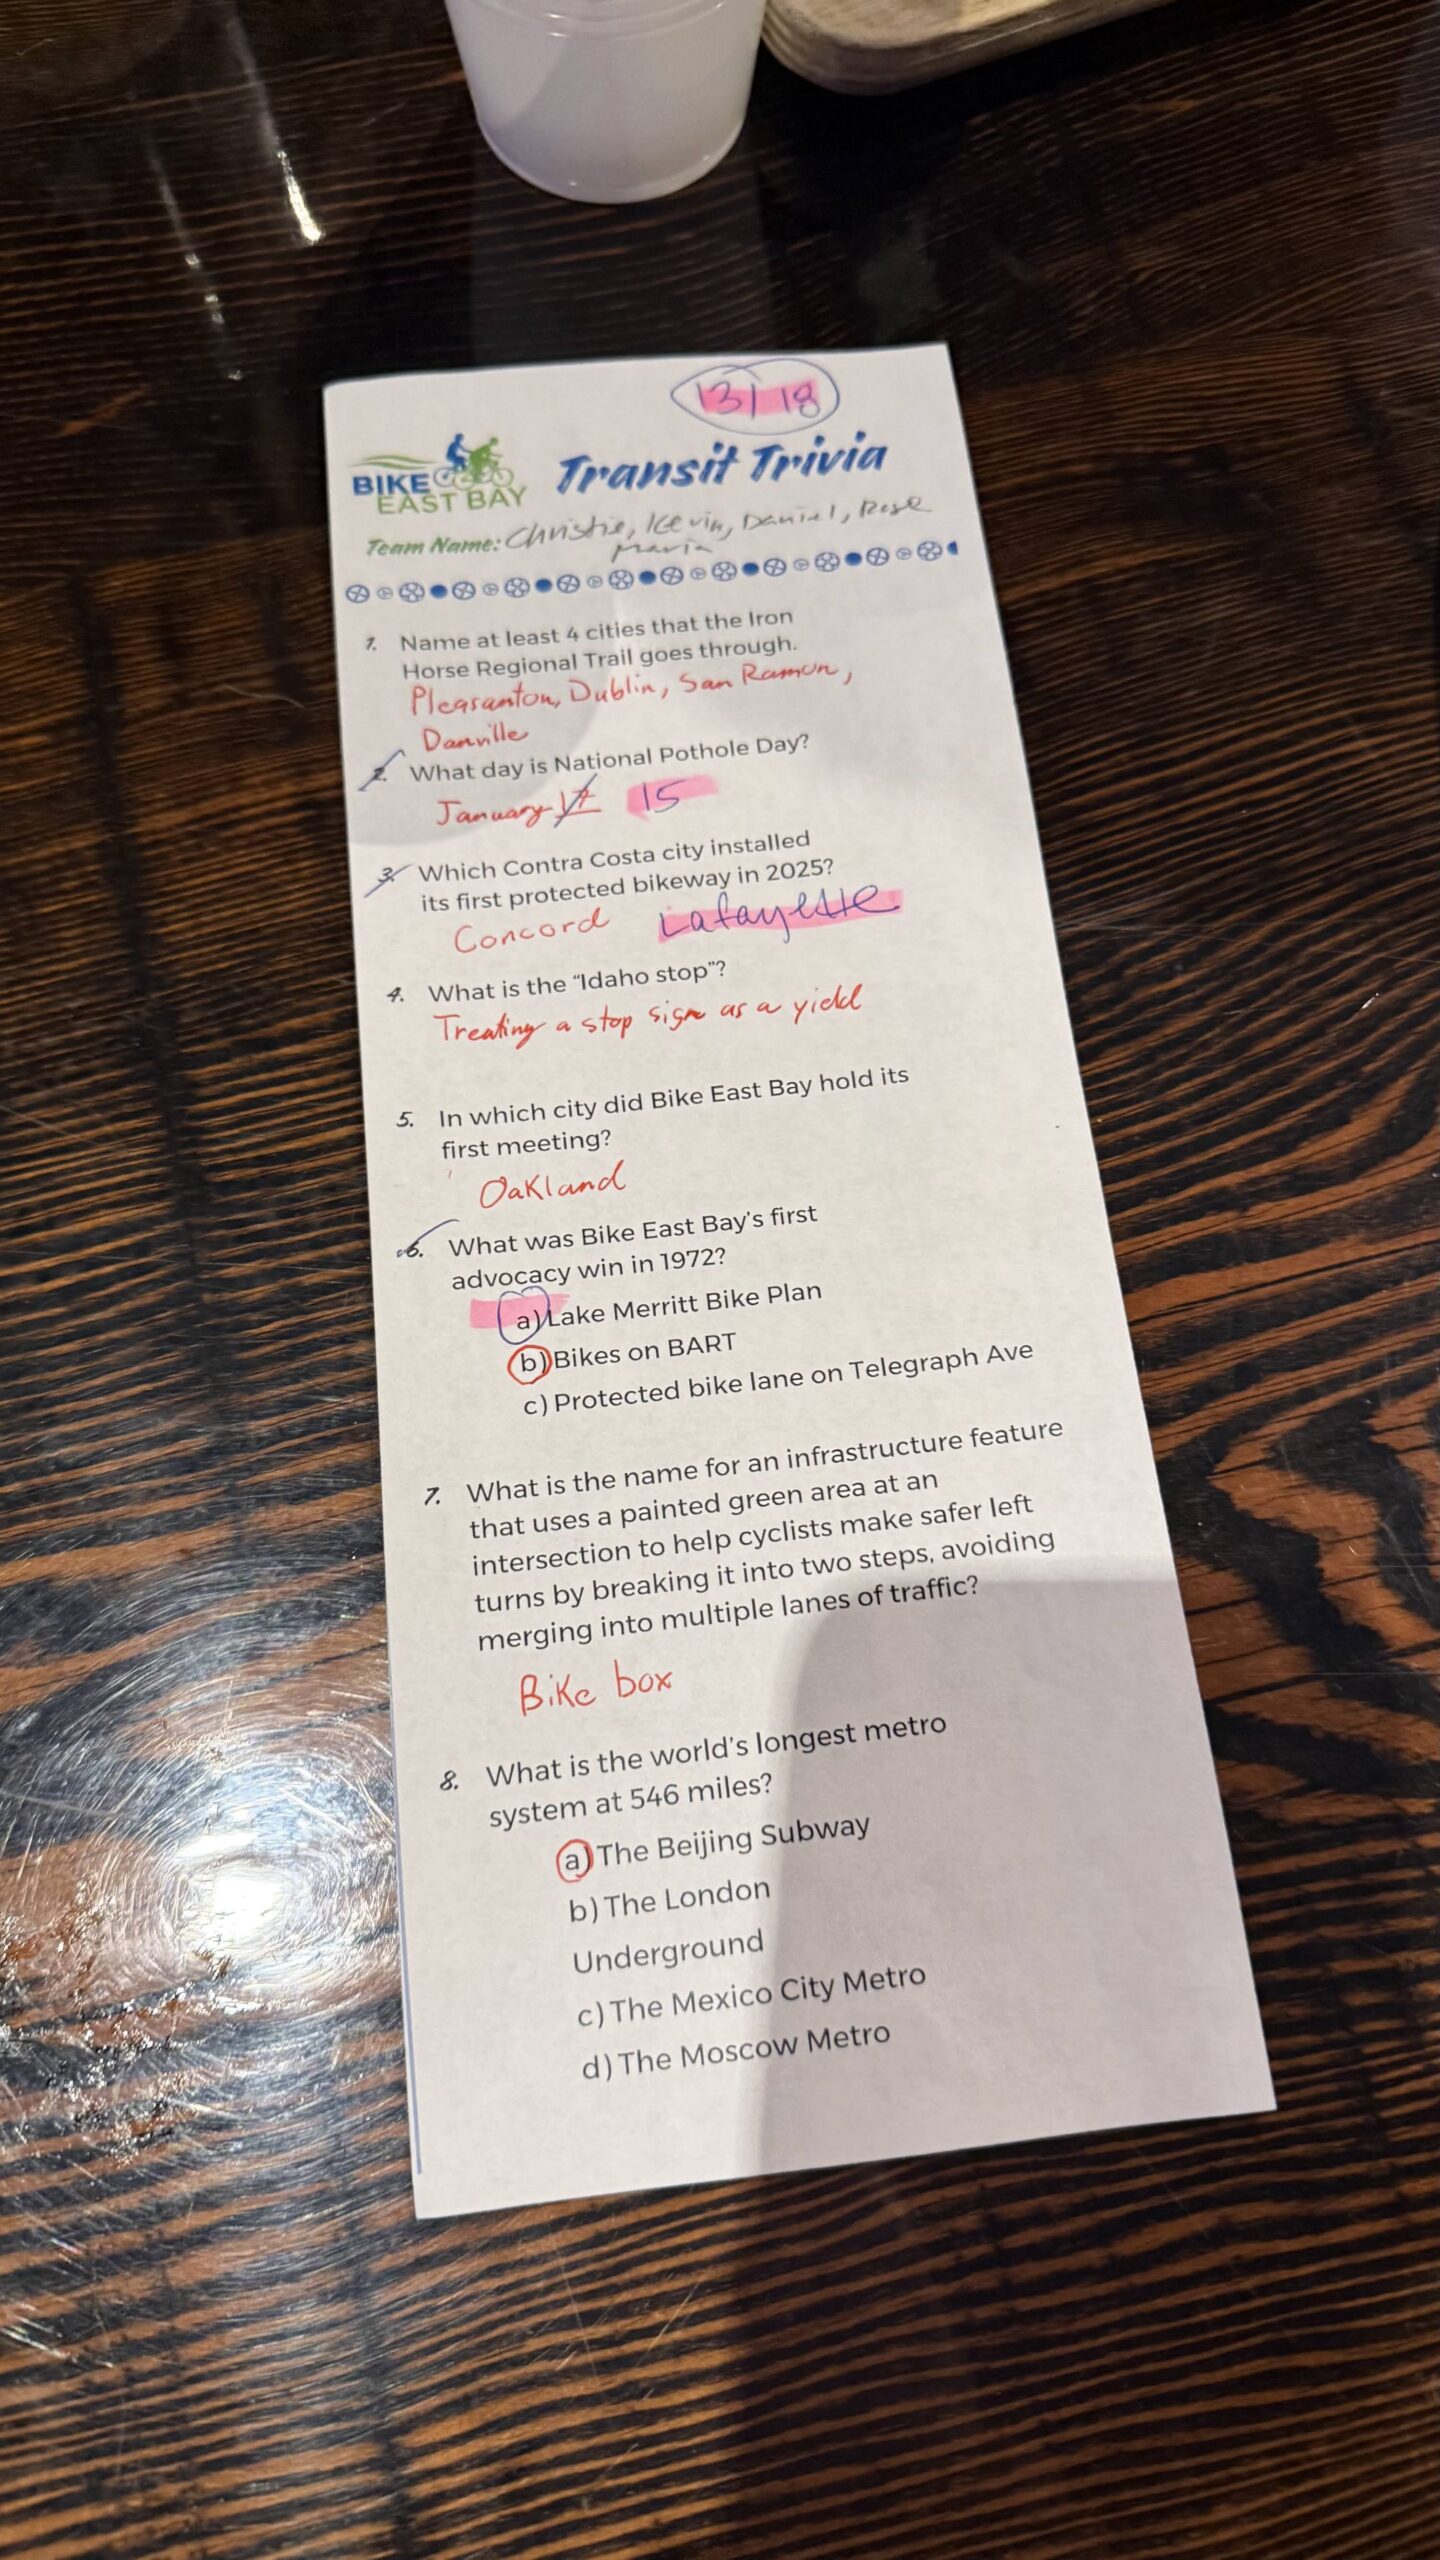 13/18
BIKE
EAST BAY
Transit Trivia
Team Name: Christie, Kevin, Daniel, Rose
Maria
1. Name at least 4 cities that the Iron
Horse Regional Trail goes through.
Pleasanton, Dublin, San Ramon,
Danville
2. What day is National Pothole Day?
January 17 15
3. Which Contra Costa city installed
its first protected bikeway in 2025?
Concord Lafayette
4. What is the “Idaho stop”?
Treating a stop sign as a yield
5. In which city did Bike East Bay hold its
first meeting?
Oakland
6. What was Bike East Bay's first
advocacy win in 1972?
a) Lake Merritt Bike Plan
b) Bikes on BART
c) Protected bike lane on Telegraph Ave
7. What is the name for an infrastructure feature
that uses a painted green area at an
intersection to help cyclists make safer left
turns by breaking it into two steps, avoiding
merging into multiple lanes of traffic?
Bike box
8. What is the world's longest metro
system at 546 miles?
a) The Beijing Subway
b) The London
Underground
c) The Mexico City Metro
d) The Moscow Metro